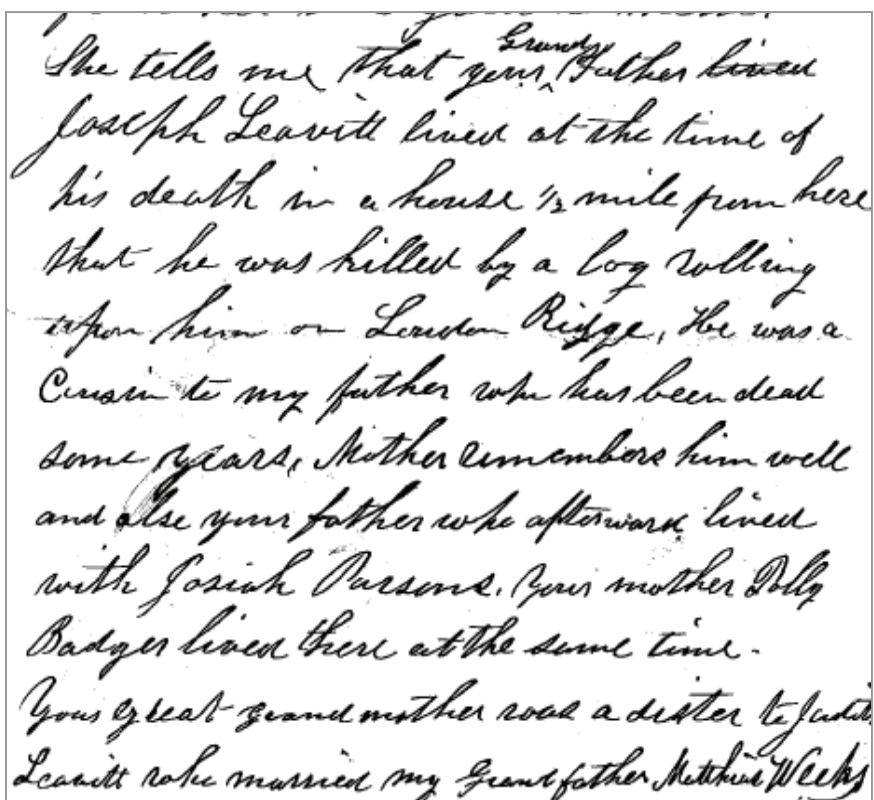 She tells me that your Grand Father lived
Joseph Leavitt lived at the time of
his death in a house ½ mile from here
that he was killed by a log rolling
upon him on Loudon Ridge, He was a
Cousin to my father who has been dead
some years, Mother remembers him well
and also your father who afterward lived
with Josiah Parsons. Your mother Polly
Badger lived there at the same time.
Your great grandmother was a sister to Judith
Leavitt who married my Grandfather Matthias Weeks